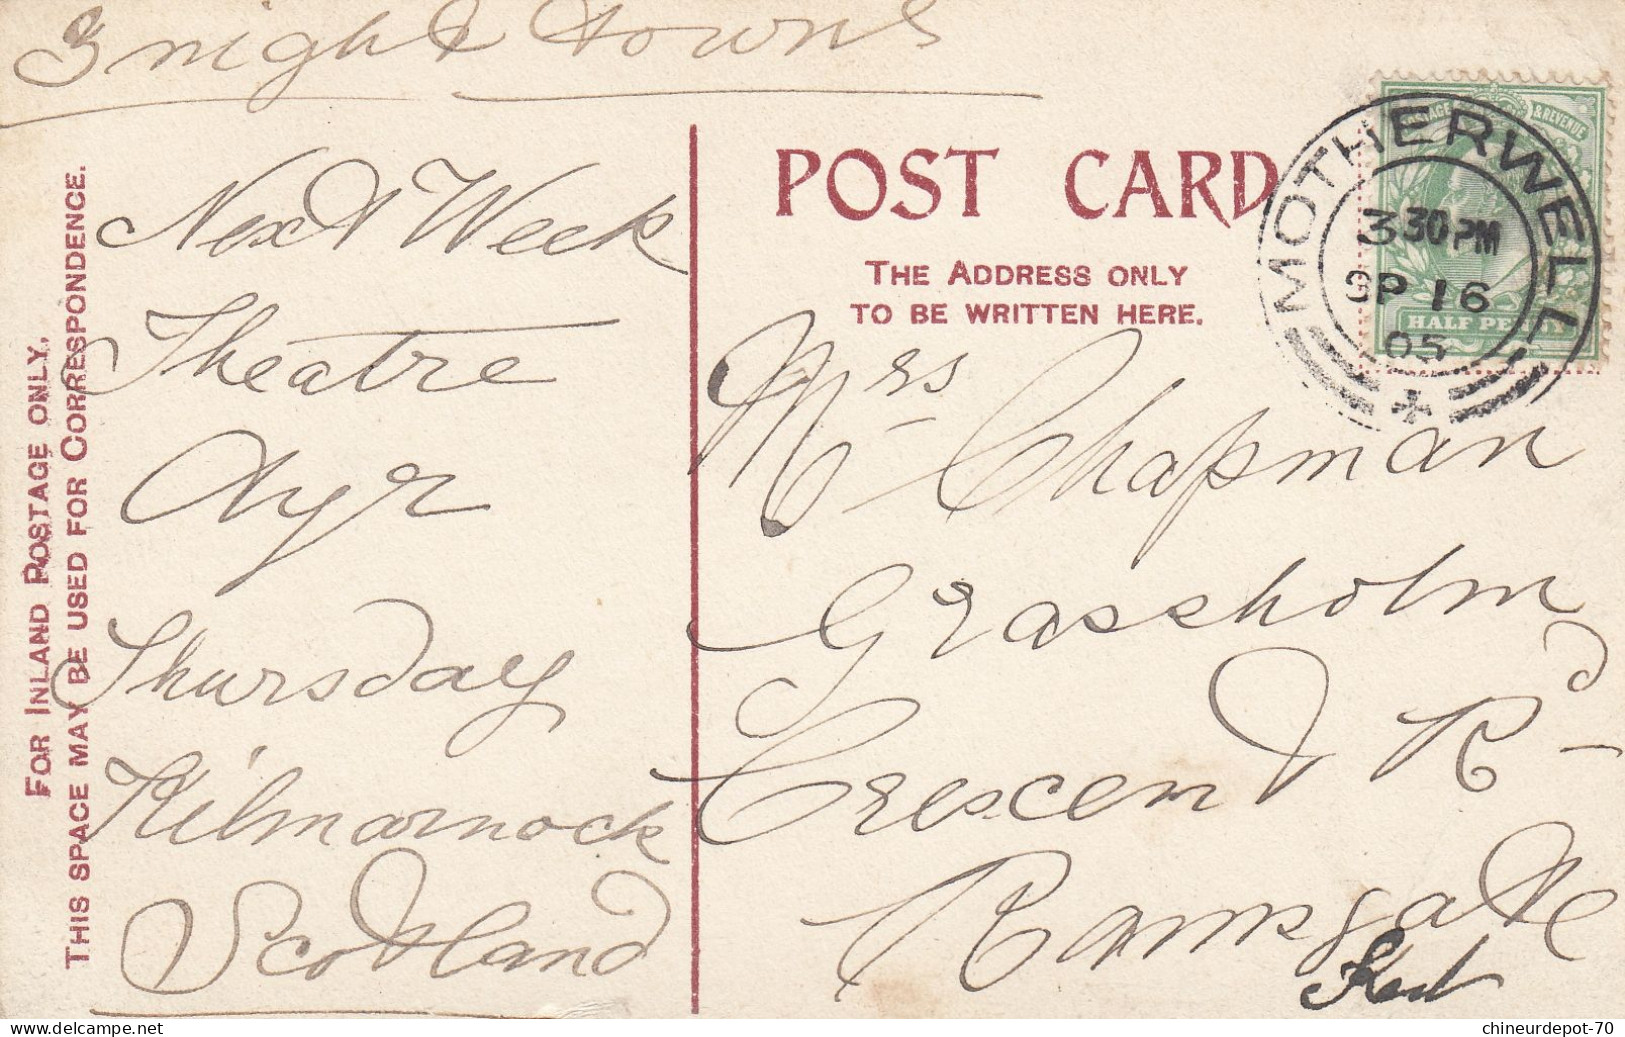 3 night towns
Next Week
Theatre
Ayr
Thursday
Kilmarnock
Scotland
FOR INLAND POSTAGE ONLY,
THIS SPACE MAY BE USED FOR CORRESPONDENCE.
POST CARD
THE ADDRESS ONLY
TO BE WRITTEN HERE.
POSTAGE & REVENUE
HALF PENNY
MOTHERWELL
3 30 PM
SP 16
05
Mrs Chapman
Grassholm
Crescent Rd
Ramsgate
Kent
chineurdepot-70